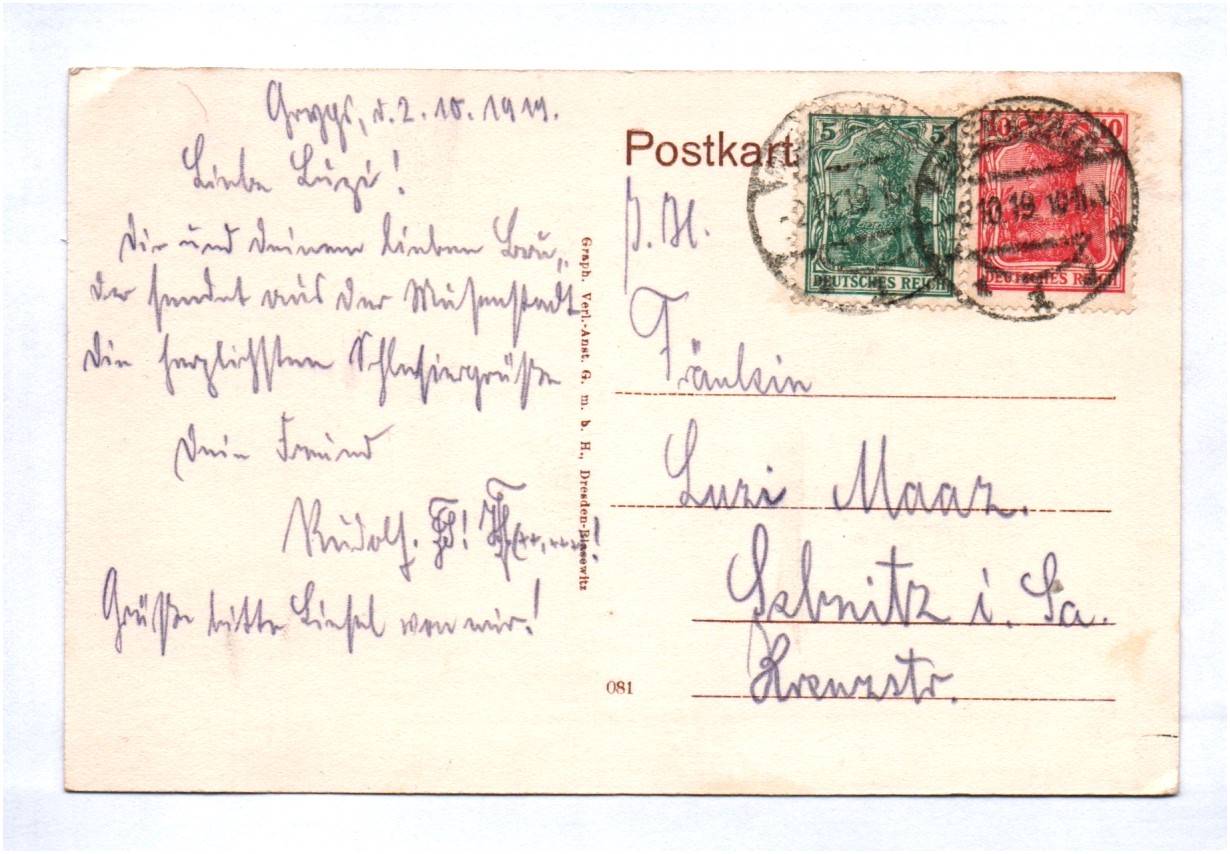 d. 2. 10. 1919.
Liebe Luzi!
Dir und deinem lieben Bru-
der sendet aus der Musenstadt
die herzlichsten Schlesiergrüße
Dein Freund
Rudolf.
Grüße bitte Liesel von mir!
Graph. Verl.-Anst. G. m. b. H., Dresden-Blasewitz
Postkart
5 5
DEUTSCHES REICH
10 10
DEUTSCHES REICH
10.19 10
Fräulein
Luzi Maaz.
Sebnitz i. Sa.
Kreuzstr.
081